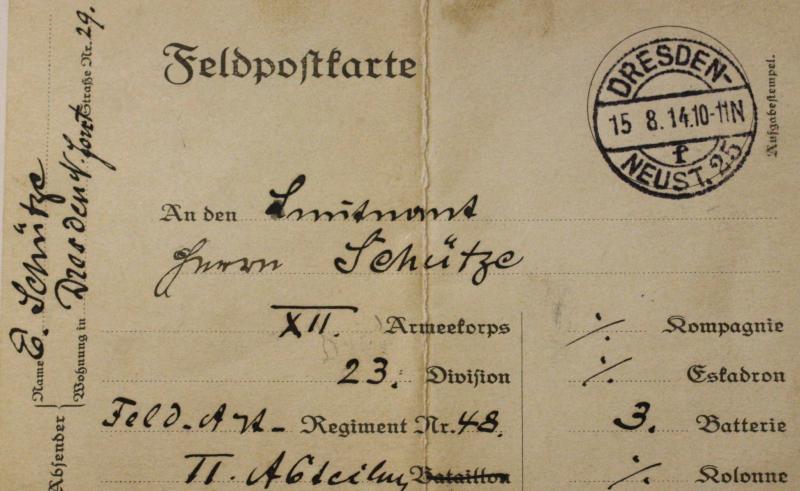 Feldpostkarte
DRESDEN-
15 8.14.10-11N
f
NEUST. 25
Aufgabestempel.
An den Leutnant
Herrn Schütze
XII. Armeekorps
23. Division
Feld-Art- Regiment Nr. 48.
II. Abteilung Bataillon
./. Kompagnie
./. Eskadron
3. Batterie
./. Kolonne
Absender
Name E. Schütze
Wohnung in Dresden N. Straße Nr. 29.